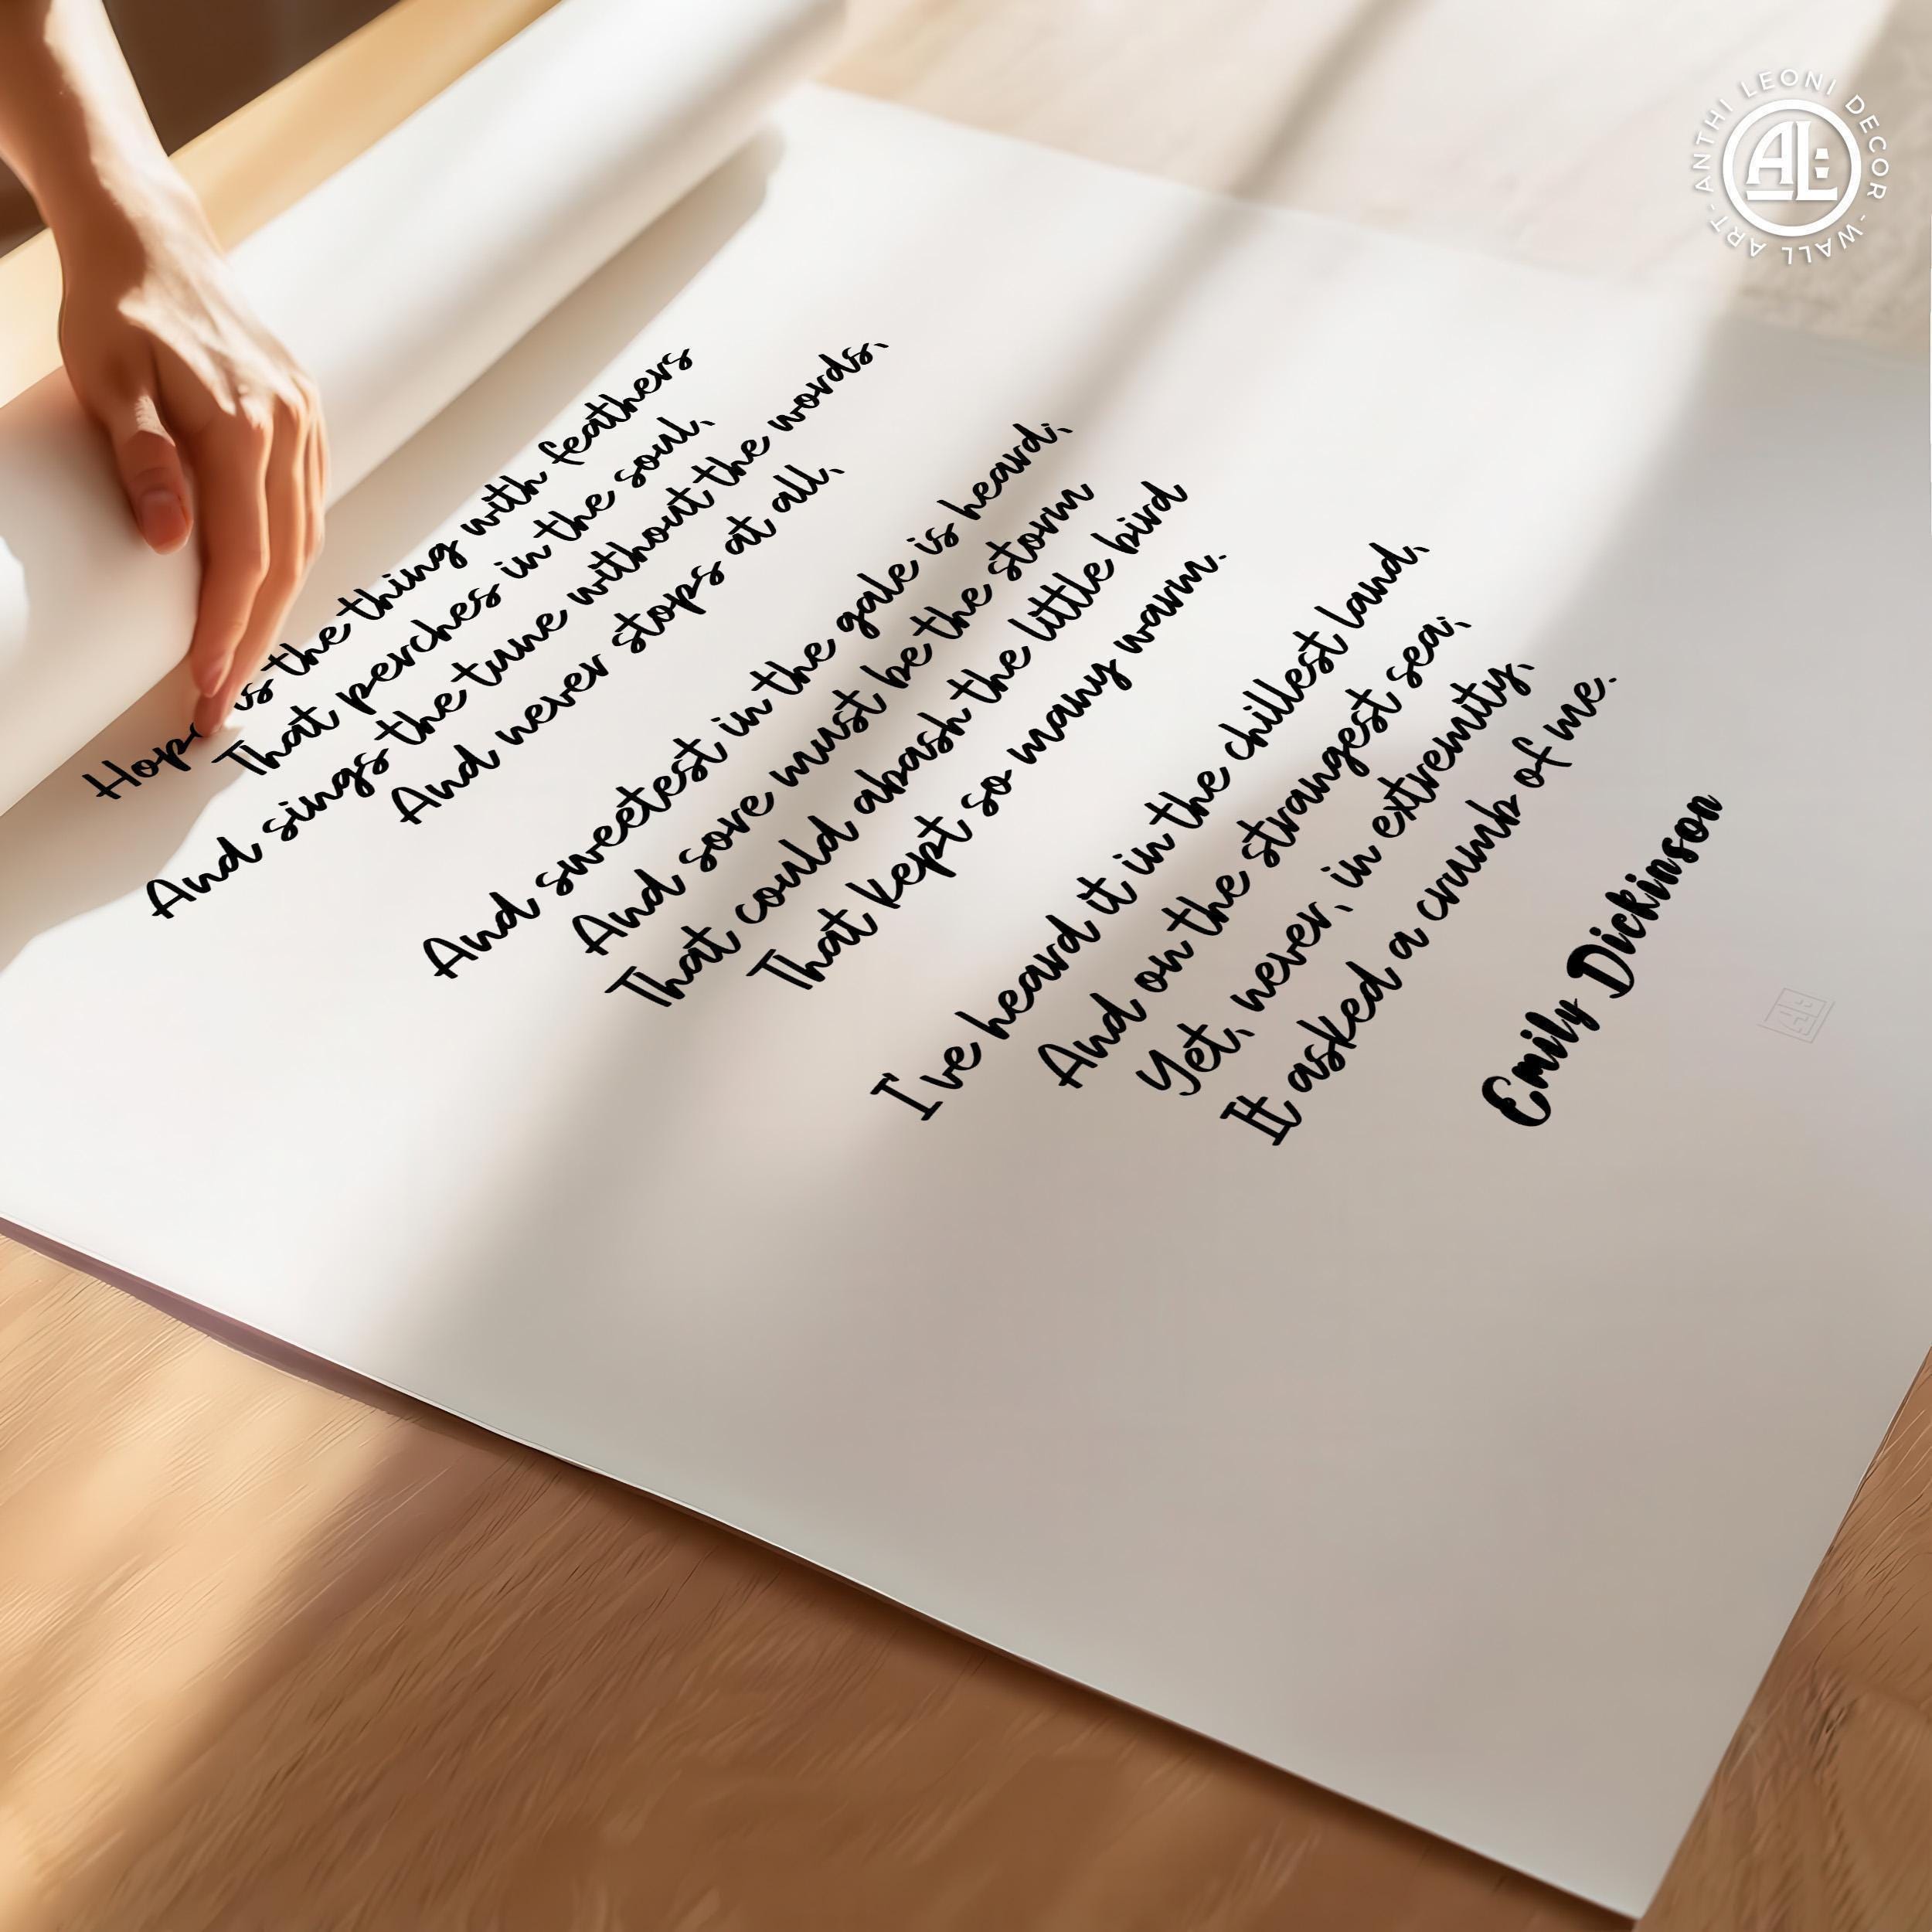 Hope is the thing with feathers
That perches in the soul,
And sings the tune without the words,
And never stops at all,
And sweetest in the gale is heard;
And sore must be the storm
That could abash the little bird
That kept so many warm.
I've heard it in the chillest land,
And on the strangest sea;
Yet, never, in extremity,
It asked a crumb of me.
Emily Dickinson
ANTHI LEONI DECOR - WALL ART -
AL